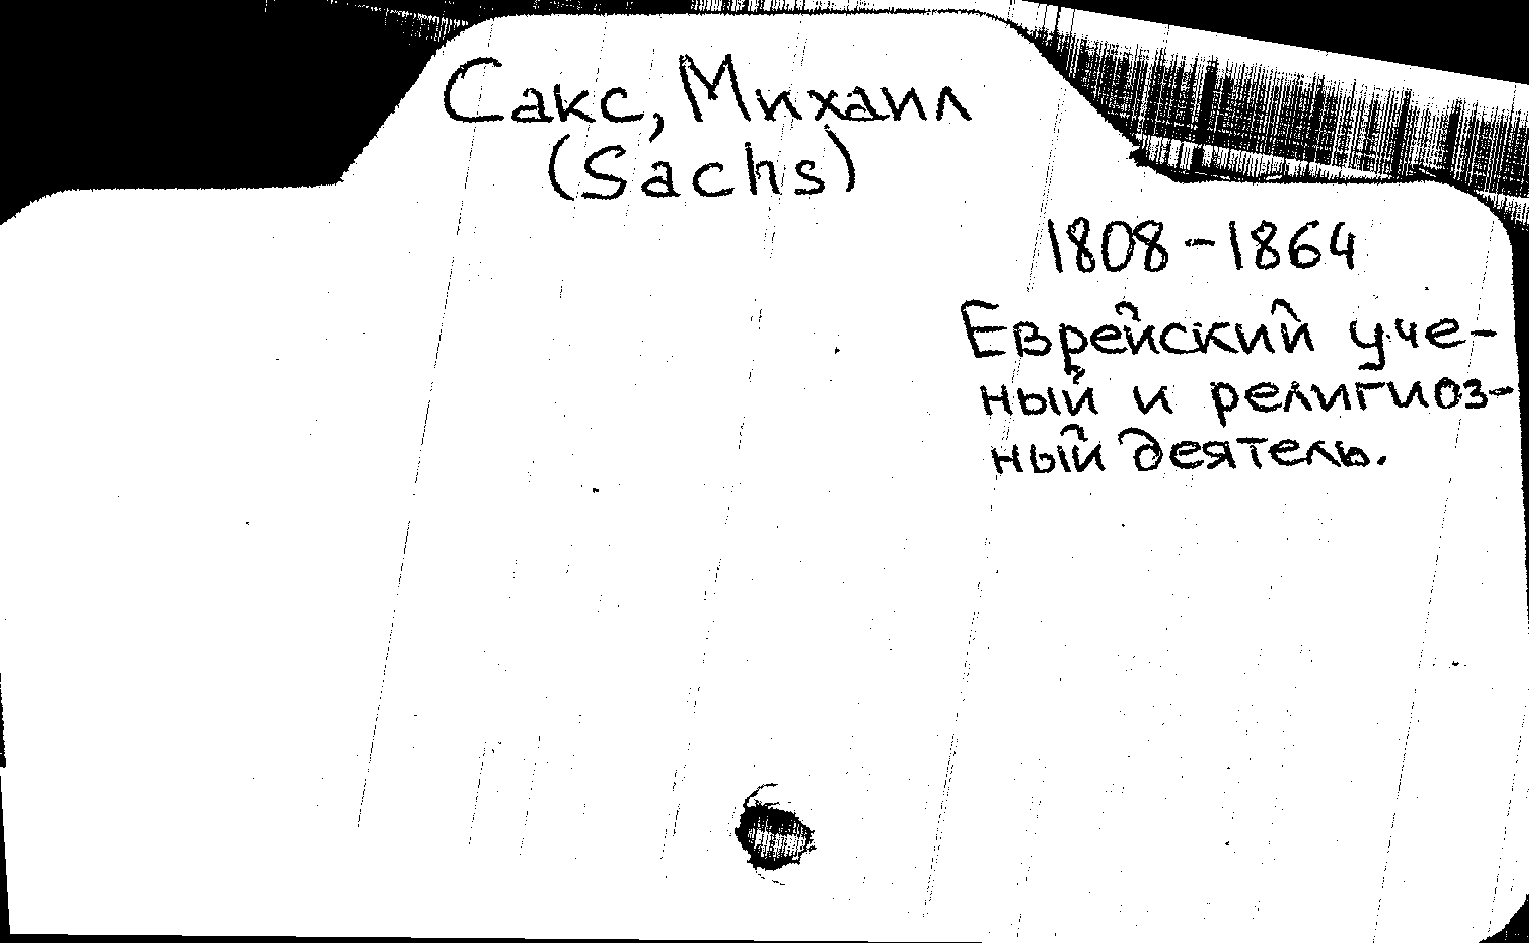 Сакс, Михаил
(Sachs)
1808-1864
Еврейский уче-
ный и религиоз-
ный деятель.